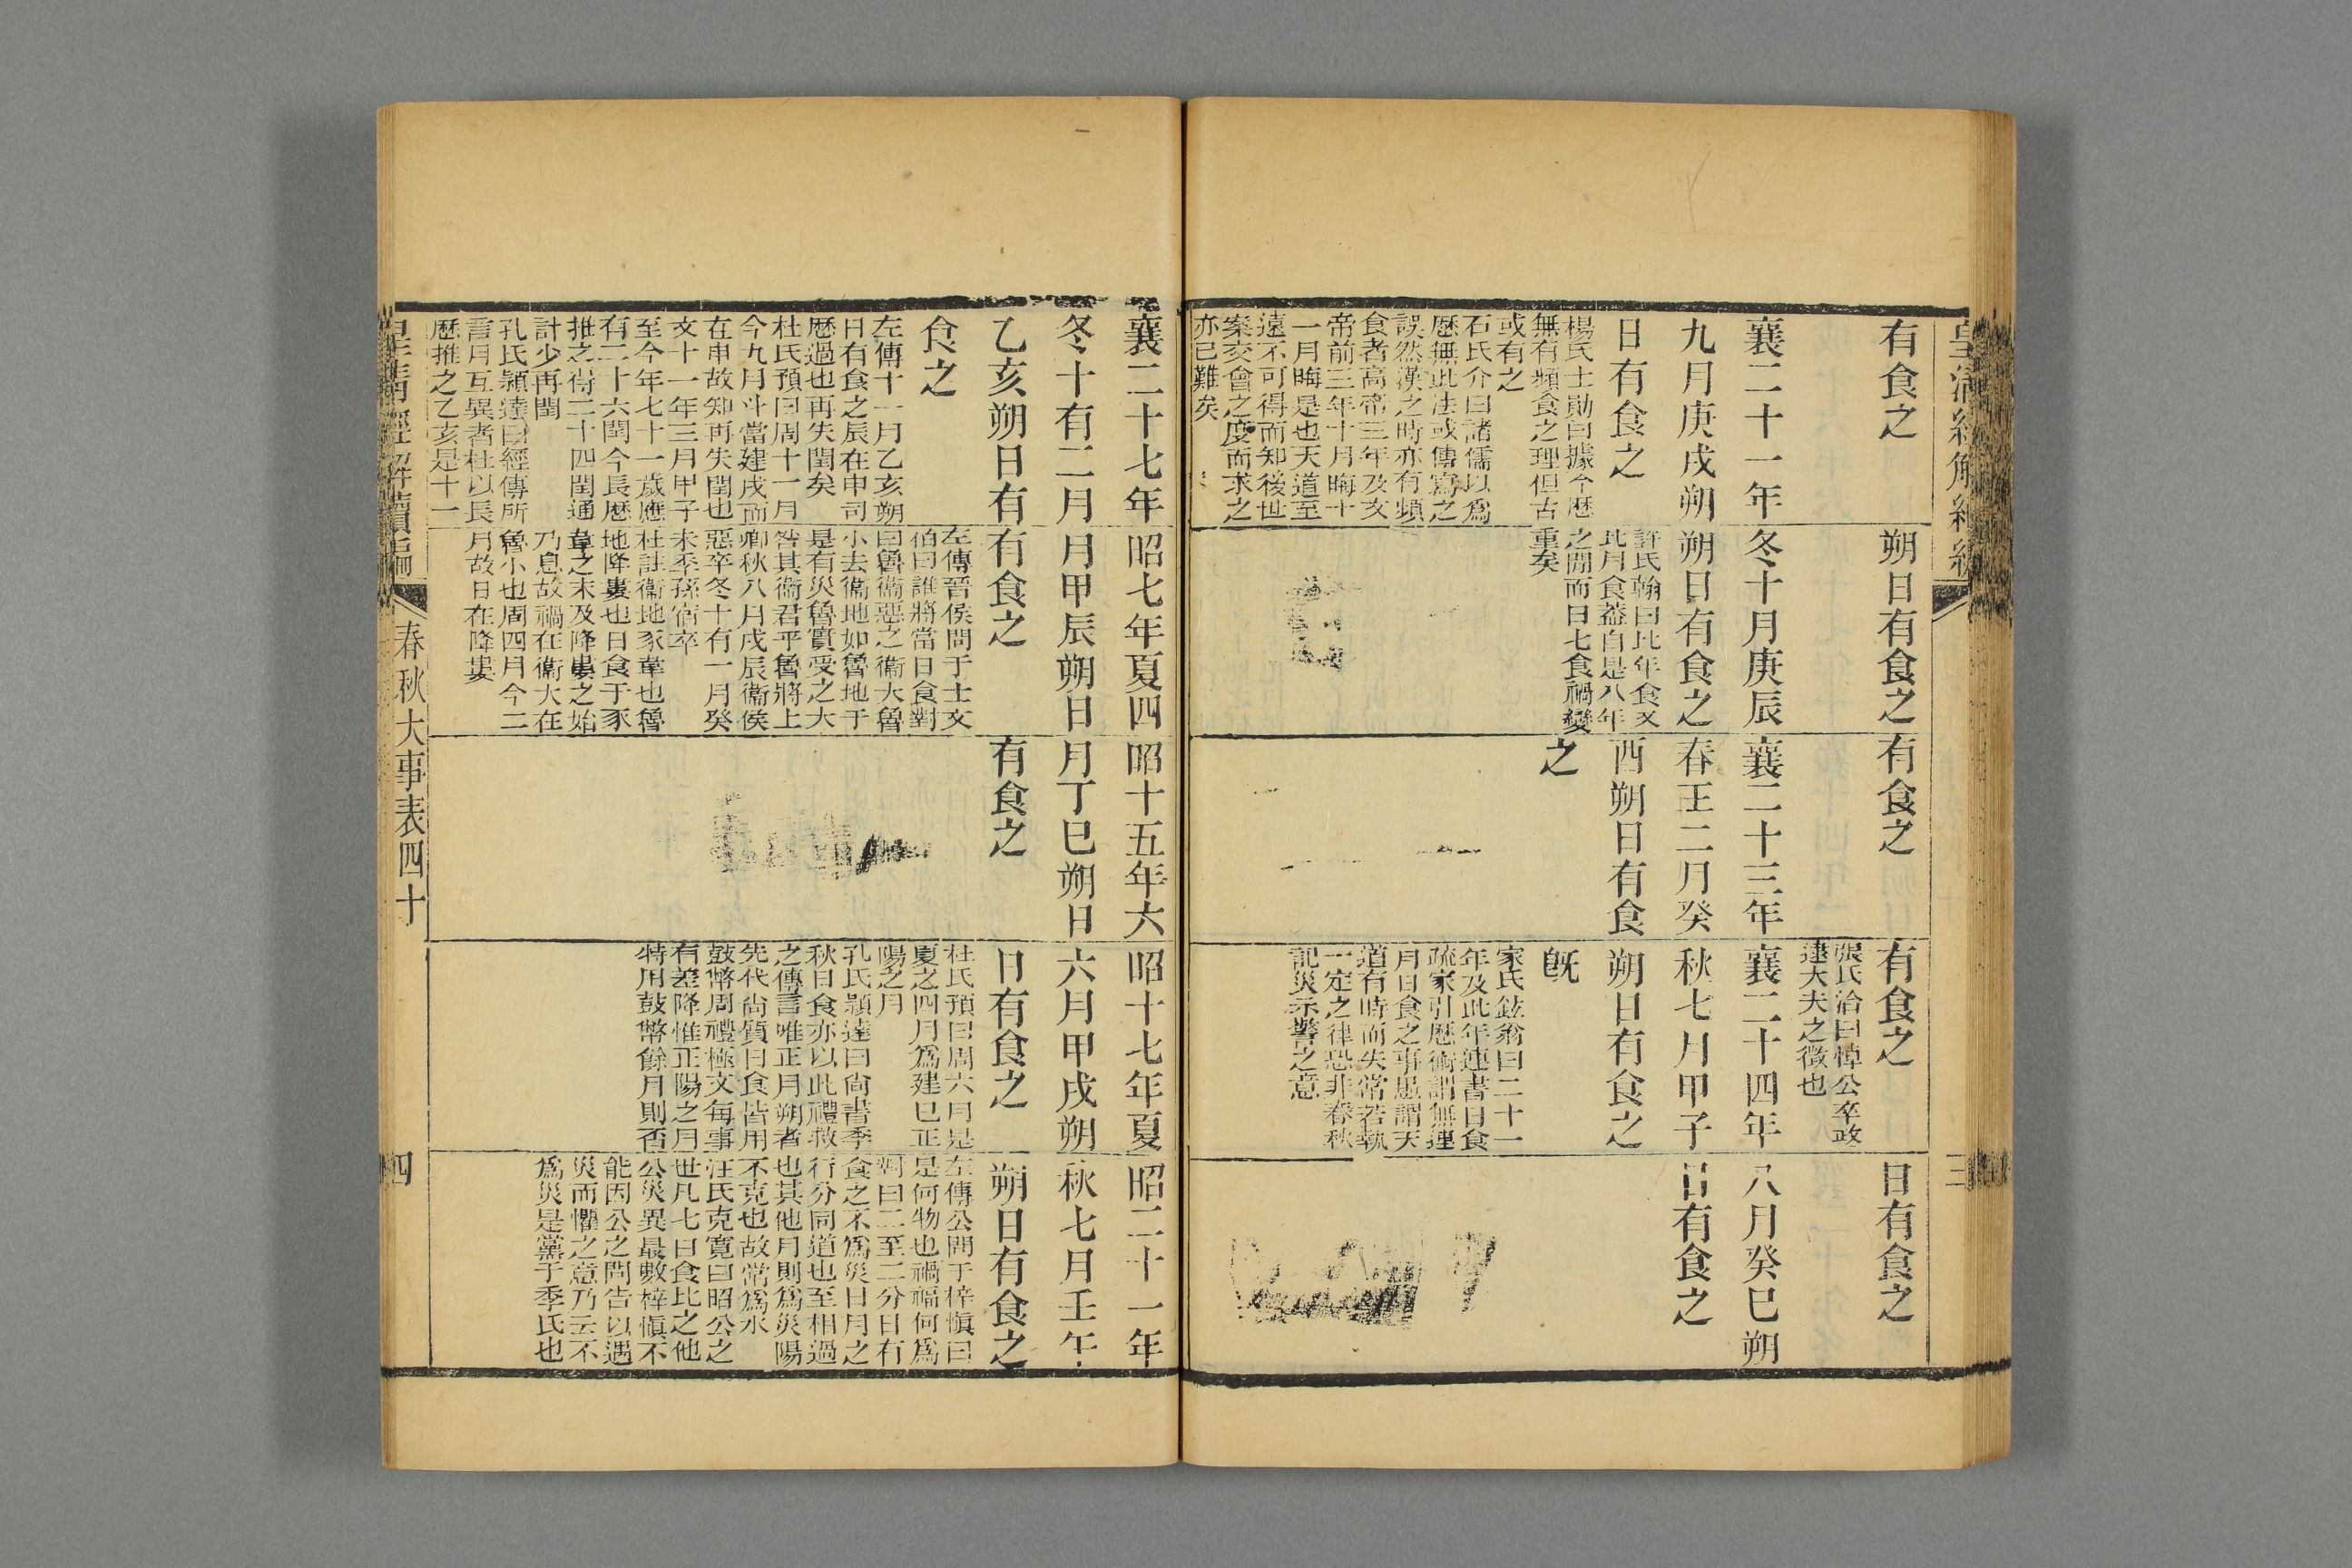 有食之
襄二十一年
九月庚戌朔
日有食之
楊氏士勛曰據今歷
無有頻食之理但古
或有之
石氏介曰諸儒以為
歷無此法或傳寫之
誤然漢之時亦有頻
食者高帝三年及文
帝前三年十月晦十
一月晦是也天道至
遠不可得而知後世
案交會之度而求之
亦已難矣
朔日有食之
冬十月庚辰
朔日有食之
許氏翰曰比年食又
比月食蓋自是八年
之間而日七食禍變
重矣
有食之
襄二十三年
春王二月癸
酉朔日有食
之
有食之
張氏洽曰悼公卒政
逮大夫之徵也
襄二十四年
秋七月甲子
朔日有食之
既
家氏鉉翁曰二十一
年及此年連書日食
疏家引歷術謂無連
月日食之事愚謂天
道有時而失常若執
一定之律恐非春秋
記災示警之意
日有食之
八月癸巳朔
日有食之
三
襄二十七年
冬十有二月
乙亥朔日有
食之
左傳十一月乙亥朔
日有食之辰在申司
歷過也再失閏矣
杜氏預曰周十一月
今九月斗當建戌而
在申故知再失閏也
文十一年三月甲子
至今年七十一歲應
有二十六閏今長歷
推之得二十四閏通
計少再閏
孔氏穎達曰經傳所
言月互異者杜以長
歷推之乙亥是十一
昭七年夏四
月甲辰朔日
有食之
左傳晉侯問于士文
伯曰誰將當日食對
曰魯衞惡之衞大魯
小去衞地如魯地于
是有災魯實受之大
咎其衞君乎魯將上
卿秋八月戌辰衞侯
惡卒冬十有一月癸
未季孫宿卒
杜註衞地豕韋也魯
地降婁也日食于豕
韋之末及降婁之始
乃息故禍在衞大在
魯小也周四月今二
月故日在降婁
昭十五年六
月丁巳朔日
有食之
昭十七年夏
六月甲戌朔
日有食之
杜氏預曰周六月是
夏之四月為建巳正
陽之月
孔氏穎達曰尚書季
秋日食亦以此禮救
之傳言唯正月朔者
先代尚質日食皆用
鼓幣周禮極文每事
有差降惟正陽之月
特用鼓幣餘月則否
昭二十一年
秋七月壬午
朔日有食之
左傳公問于梓慎曰
是何物也禍福何為
對曰二至二分日有
食之不為災日月之
行分同道也至相過
也其他月則為災陽
不克也故常為水
汪氏克寬曰昭公之
世凡七日食比之他
公災異最數梓慎不
能因公之問告以遇
災而懼之意乃云不
為災是黨于季氏也
皇清經解續編
春秋大事表四十
四